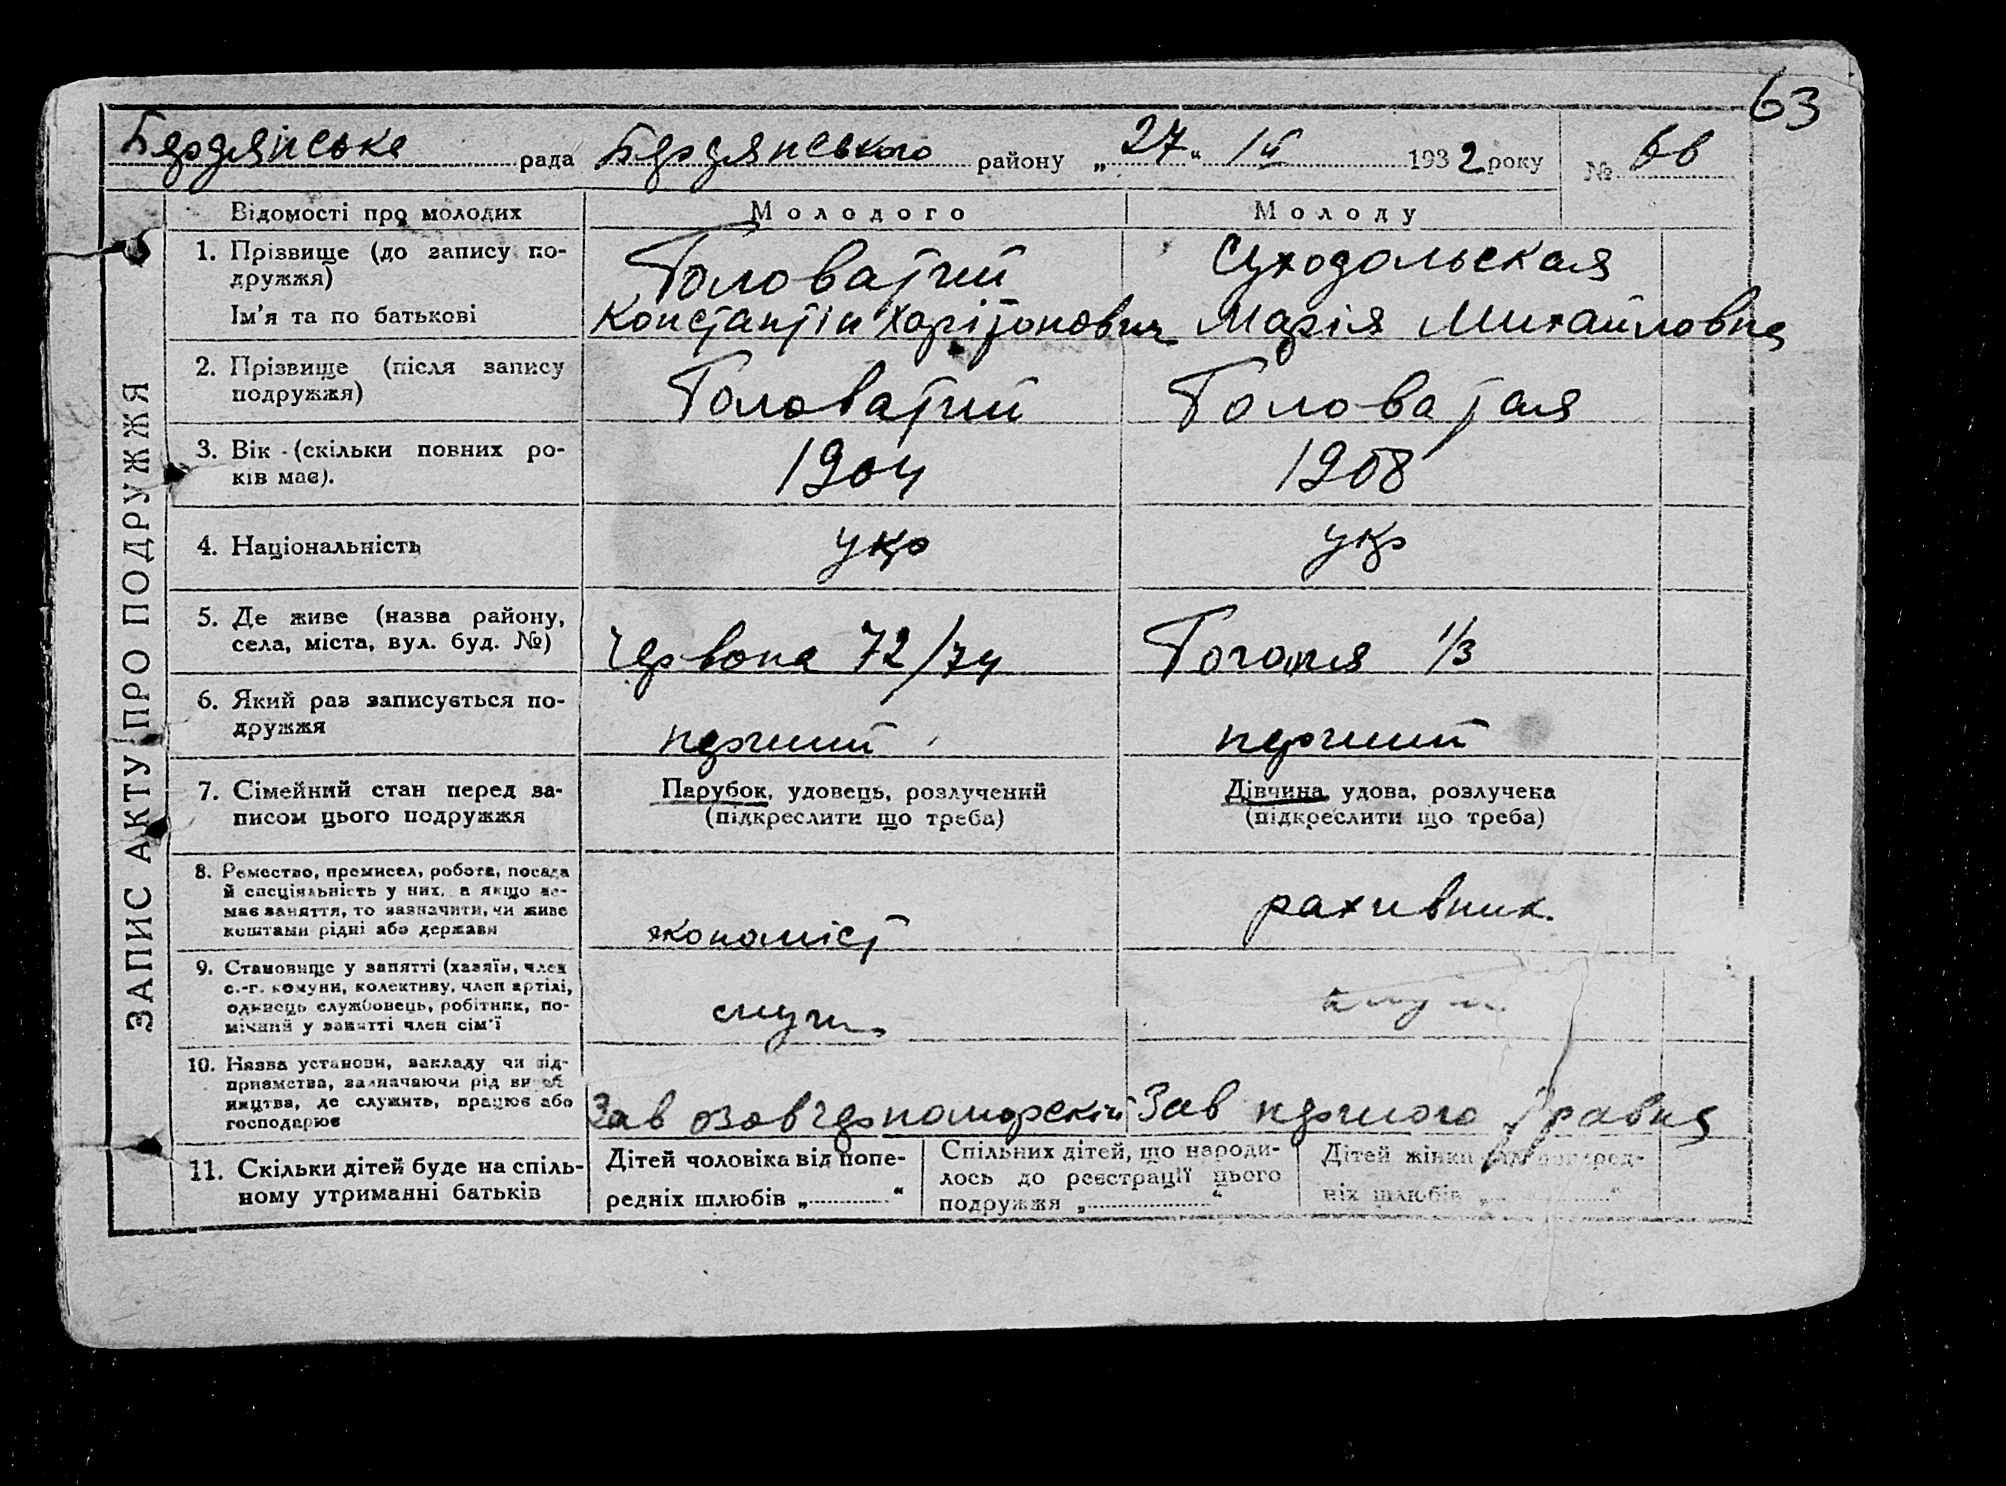 63
Бердянське рада Бердянського району „27“ IV 1932 року № 66
Відомості про молодих Молодого Молоду
ЗАПИС АКТУ ПРО ПОДРУЖЖЯ
1. Прізвище (до запису по-
дружжя)
Головатий Суходольская
Ім'я та по батькові Константін Харітонович Марія Михайловна
2. Прізвище (після запису
подружжя) Головатий Головатая
3. Вік (скільки повних ро-
ків має). 1904 1908
4. Національність укр укр
5. Де живе (назва району,
села, міста, вул. буд. №) Червона 72/74 Гоголя 1/3
6. Який раз записується по-
дружжя перший перший
7. Сімейний стан перед за- Парубок, удовець, розлучений Дівчина, удова, розлучена
писом цього подружжя (підкреслити що треба) (підкреслити що треба)
8. Ремество, промисел, робота, посада
й спеціяльність у них, а якщо не-
має заняття, то зазначити, чи живе
коштами рідні або держави
економіст рахивник.
9. Становище у занятті (хазяїн, член
с.-г. комуни, колективу, член артілі,
одинець службовець, робітник, по-
мічний у занятті член сім'ї
служ
10. Назва установи, закладу чи під-
приємства, зазначаючи рід вироб
ництва, де служить, працює або
господарює
Зав Азовчерноморскій Зав першого травня
11. Скільки дітей буде на спіль-
ному утриманні батьків
Дітей чоловіка від попе-
редніх шлюбів „ “
Спільних дітей, що народи-
лось до реєстрації цього
подружжя „ “
Дітей жінки від поперед-
ніх шлюбів „ “